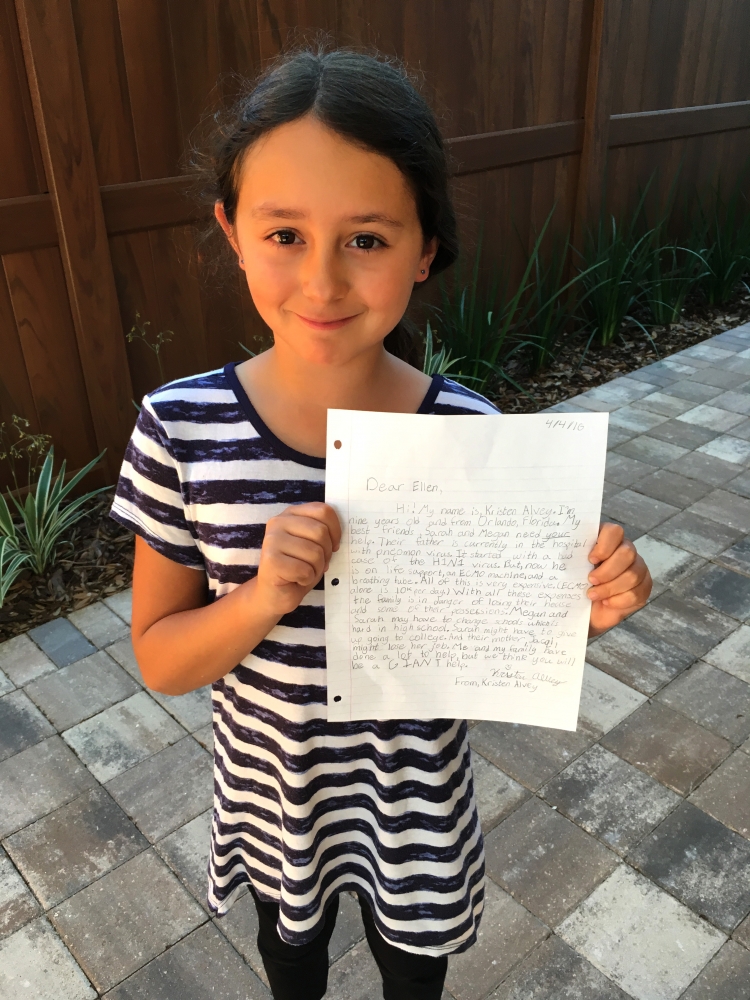 4/4/16
Dear Ellen,
Hi! My name is, Kristen Alvey. I'm
nine years old and from Orlando, Florida. My
best friends, Sarah and Megan need your
help. Their father is currently in the hospital
with pneomon virus. It started with a bad
case of the H1N1 virus. But, now he
is on life support, an ECMO machine, and a
breathing tube. All of this is very expensive. (ECMO
alone is 10K per day) With all these expenses
the family is in danger of losing their house
and some of their possessions. Megan and
Sarah may have to change schools which is
hard in high school. Sarah might have to give
up going to college. And their mother,
might lose her job. Me and my family have
done a lot to help, but we think you will
be a GIANT help.
Kristen Alvey
From, Kristen Alvey